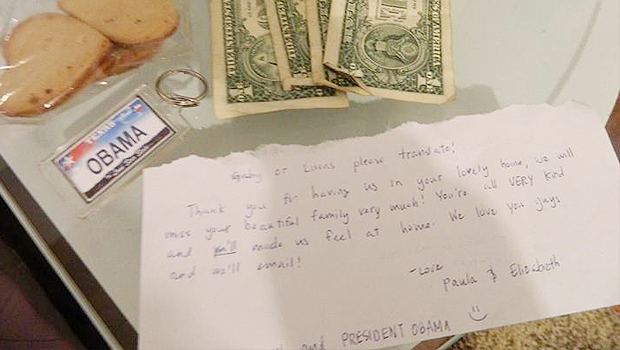 TEXAS
OBAMA
Gaby or Lucas please translate!
Thank you for having us in your lovely home, we will
miss your beautiful family very much! You're all VERY kind
and ya'll made us feel at home. We love you guys
and we'll email!
-Love
Paula & Elizabeth
and PRESIDENT OBAMA